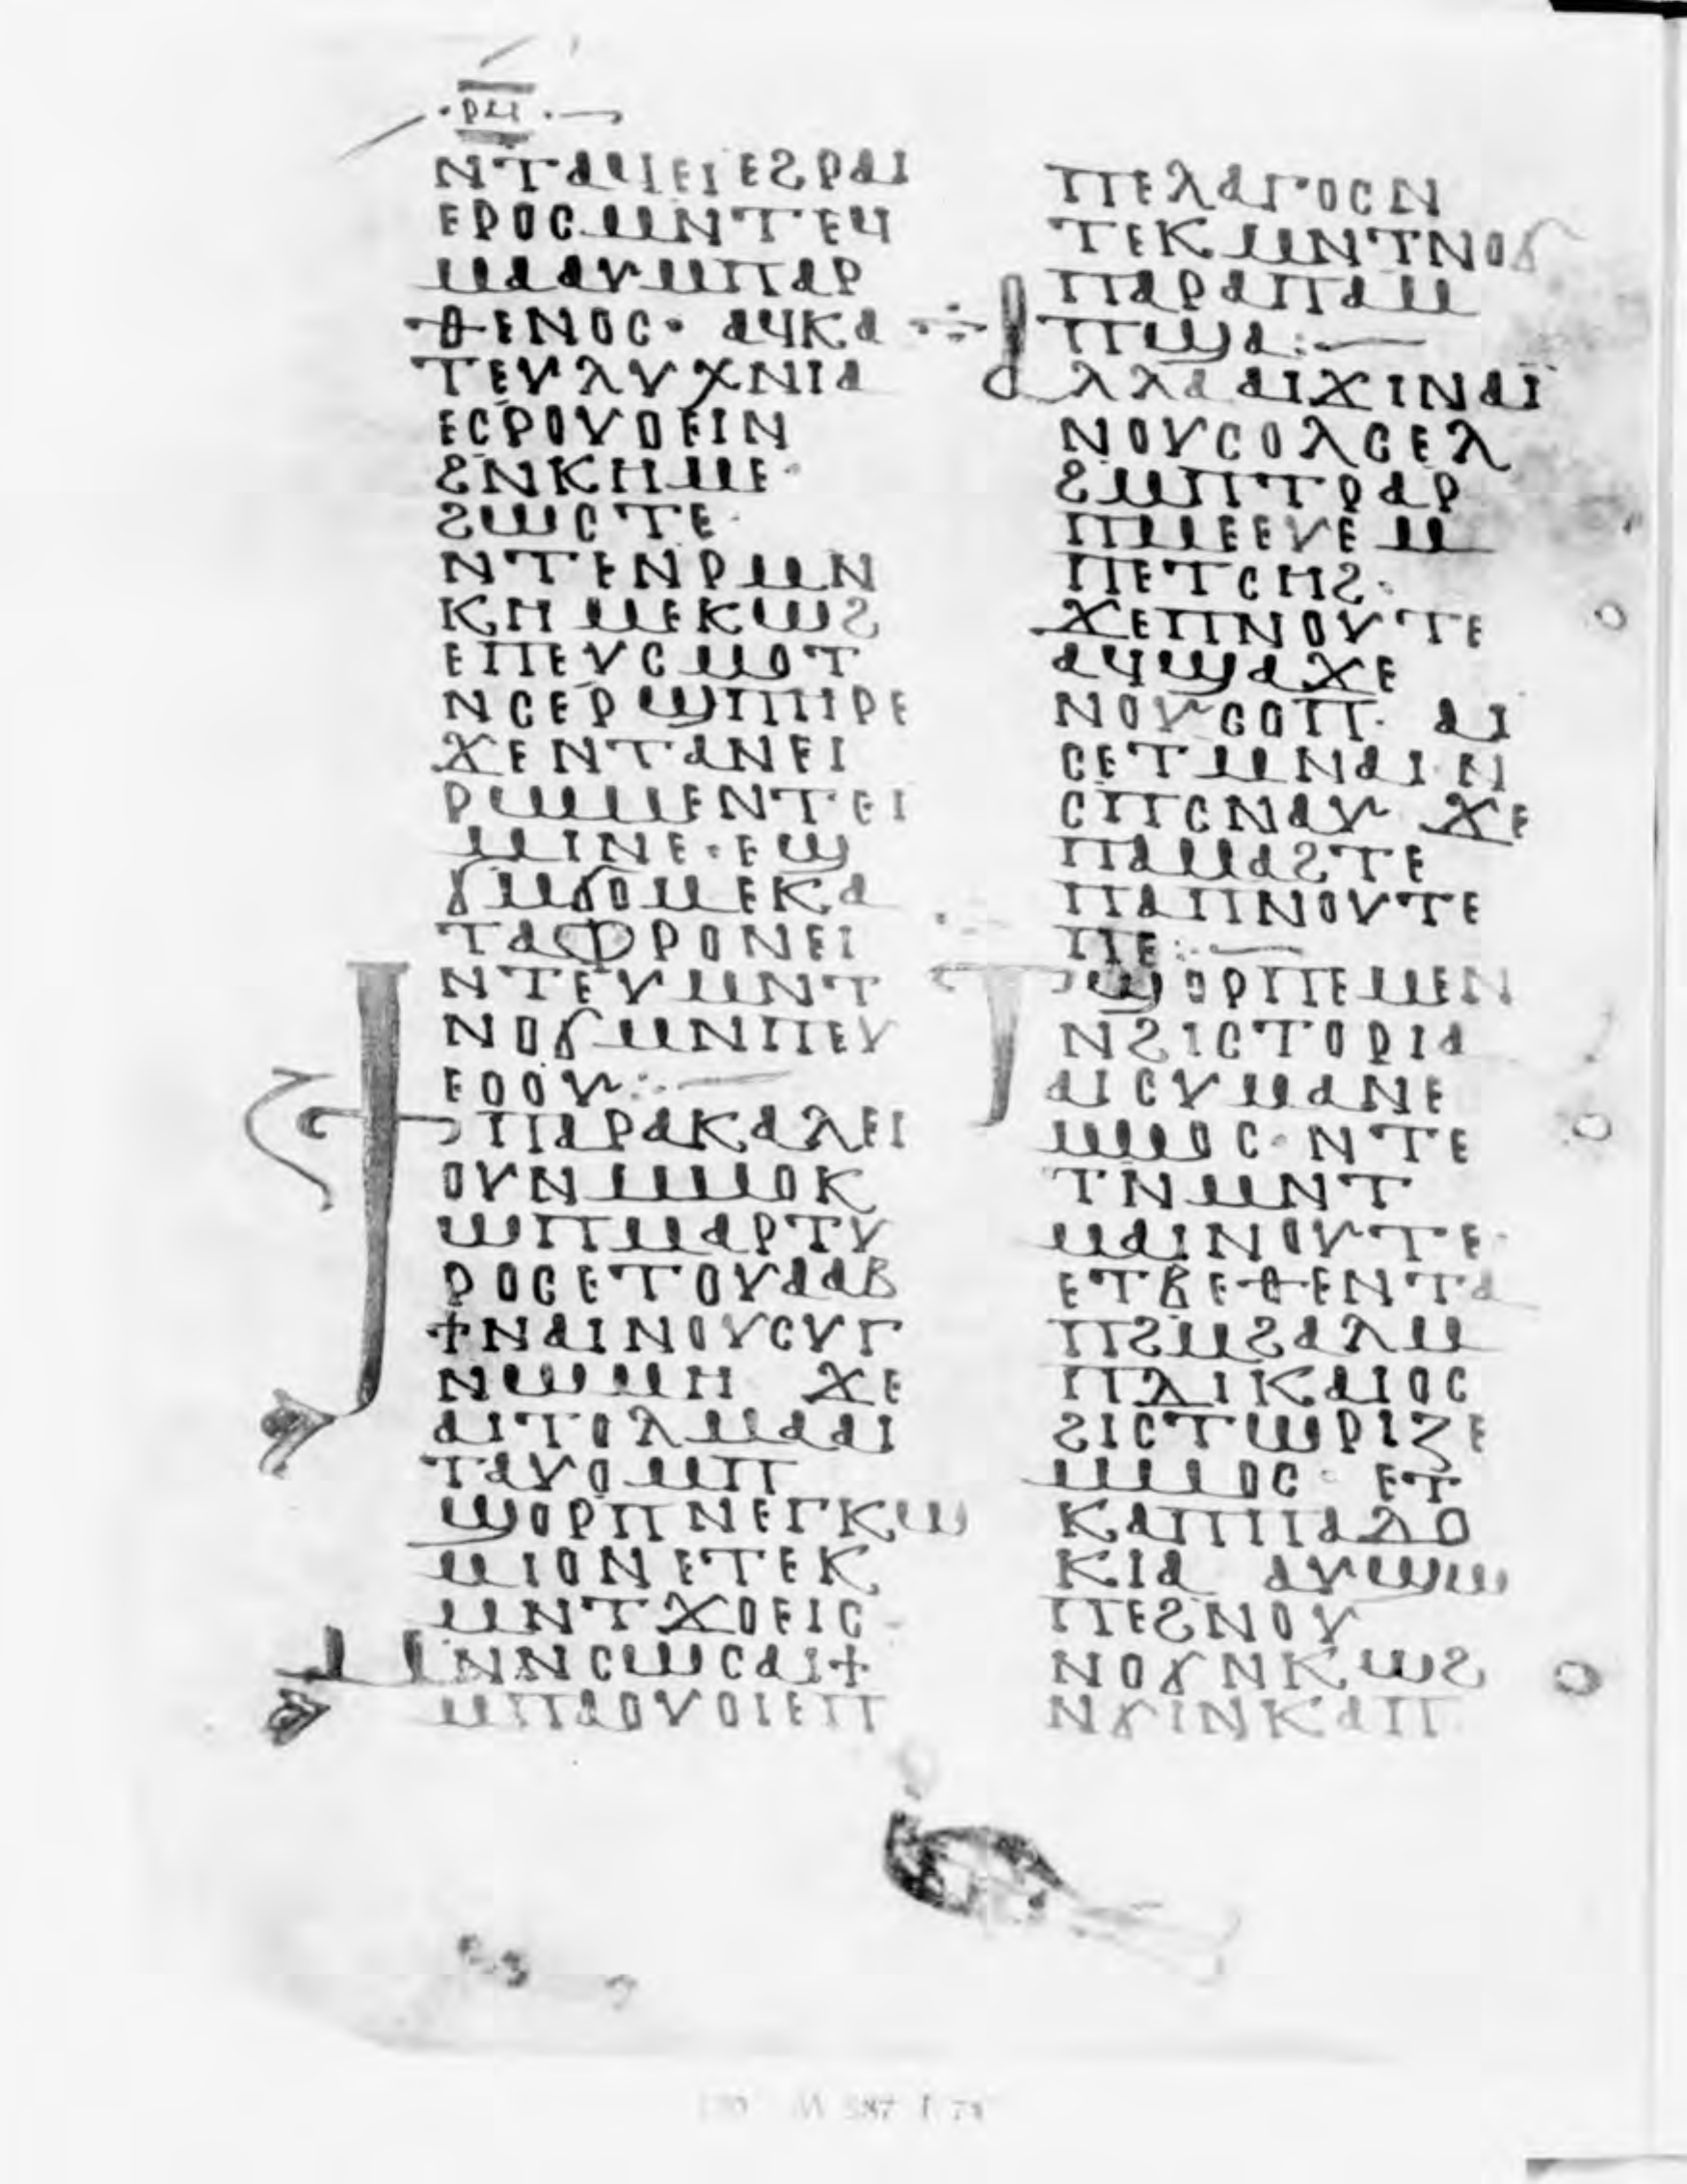 ⲣⲙⲓ
ⲛⲧⲁϥⲉⲓⲉϩⲣⲁⲓ
ⲉⲣⲟⲥⲙⲛⲧⲉϥ
ⲙⲁⲁⲩⲙⲡⲁⲣ
ⲑⲉⲛⲟⲥ· ⲁϥⲕⲁ
ⲧⲉⲩⲗⲩⲭⲛⲓⲁ
ⲉⲥⲣⲟⲩⲟⲉⲓⲛ
ϩⲛⲕⲏⲙⲉ·
ϩⲱⲥⲧⲉ
ⲛⲧⲉⲛⲣⲙⲛ
ⲕⲏⲙⲉⲕⲱϩ
ⲉⲡⲉⲩⲥⲙⲟⲧ
ⲛⲥⲉⲣϣⲡⲏⲣⲉ
ϫⲉⲛⲧⲁⲛⲉⲓ
ⲣⲱⲙⲉⲛⲧⲉⲓ
ⲙⲓⲛⲉ·ⲉϣ
ϭⲙϭⲟⲙⲉⲕⲁ
ⲧⲁⲫⲣⲟⲛⲉⲓ
ⲛⲧⲉⲩⲙⲛⲧ
ⲛⲟϭⲙⲛⲡⲉⲩ
ⲉⲟⲟⲩ:—
ϯⲡⲁⲣⲁⲕⲁⲗⲉⲓ
ⲟⲩⲛⲙⲙⲟⲕ
ⲱⲡⲙⲁⲣⲧⲩ
ⲣⲟⲥⲉⲧⲟⲩⲁⲁⲃ
ϯⲛⲁⲓⲛⲟⲩⲥⲩⲅ
ⲛⲱⲙⲏ ϫⲉ
ⲁⲓⲧⲟⲗⲙⲁⲁⲓ
ⲧⲁⲩⲟⲙⲡ
ϣⲟⲣⲡⲛⲉⲅⲕⲱ
ⲙⲓⲟⲛⲉⲧⲉⲕ
ⲙⲛⲧϫⲟⲉⲓⲥ
ⲙⲛⲛⲥⲱⲥⲁⲓϯ
ⲙⲡⲁⲟⲩⲟⲓⲉⲡ
ⲡⲉⲗⲁⲅⲟⲥⲛ
ⲧⲉⲕⲙⲛⲧⲛⲟϭ
ⲡⲁⲣⲁⲡⲁⲙ
ⲡϣⲁ:—
ⲁⲗⲗⲁⲁⲓϫⲓⲛⲁⲓ
ⲛⲟⲩⲥⲟⲗⲥⲉⲗ
ϩⲙⲡⲧⲣⲁⲣ
ⲡⲙⲉⲉⲩⲉⲙ
ⲡⲉⲧⲥⲏϩ·
ϫⲉⲡⲛⲟⲩⲧⲉ
ⲁϥϣⲁϫⲉ
ⲛⲟⲩⲥⲟⲡ· ⲁⲓ
ⲥⲉⲧⲙⲛⲁⲓⲛ
ⲥⲡⲥⲛⲁⲩ ϫⲉ
ⲡⲁⲙⲁϩⲧⲉ
ⲡⲁⲡⲛⲟⲩⲧⲉ
ⲡⲉ:—
ⲧϣⲟⲣⲡⲉⲙⲉⲛ
ⲛϩⲓⲥⲧⲟⲣⲓⲁ
ⲁⲓⲥⲩⲙⲁⲛⲉ
ⲙⲙⲟⲥ·ⲛⲧⲉ
ⲧⲛⲙⲛⲧ
ⲙⲁⲓⲛⲟⲩⲧⲉ·
ⲉⲧⲃⲉⲑⲉⲛⲧⲁ
ⲡϩⲙϩⲁⲗⲙ
ⲡⲇⲓⲕⲁⲓⲟⲥ
ϩⲓⲥⲧⲱⲣⲓⲍⲉ
ⲙⲙⲟⲥ· ⲉⲧ
ⲕⲁⲡⲡⲁⲇⲟ
ⲕⲓⲁ ⲁⲩϣⲱ
ⲡⲉϩⲛⲟⲩ
ⲛⲟϭⲛⲕⲱϩ
ⲛϭⲓⲛⲕⲁⲡ